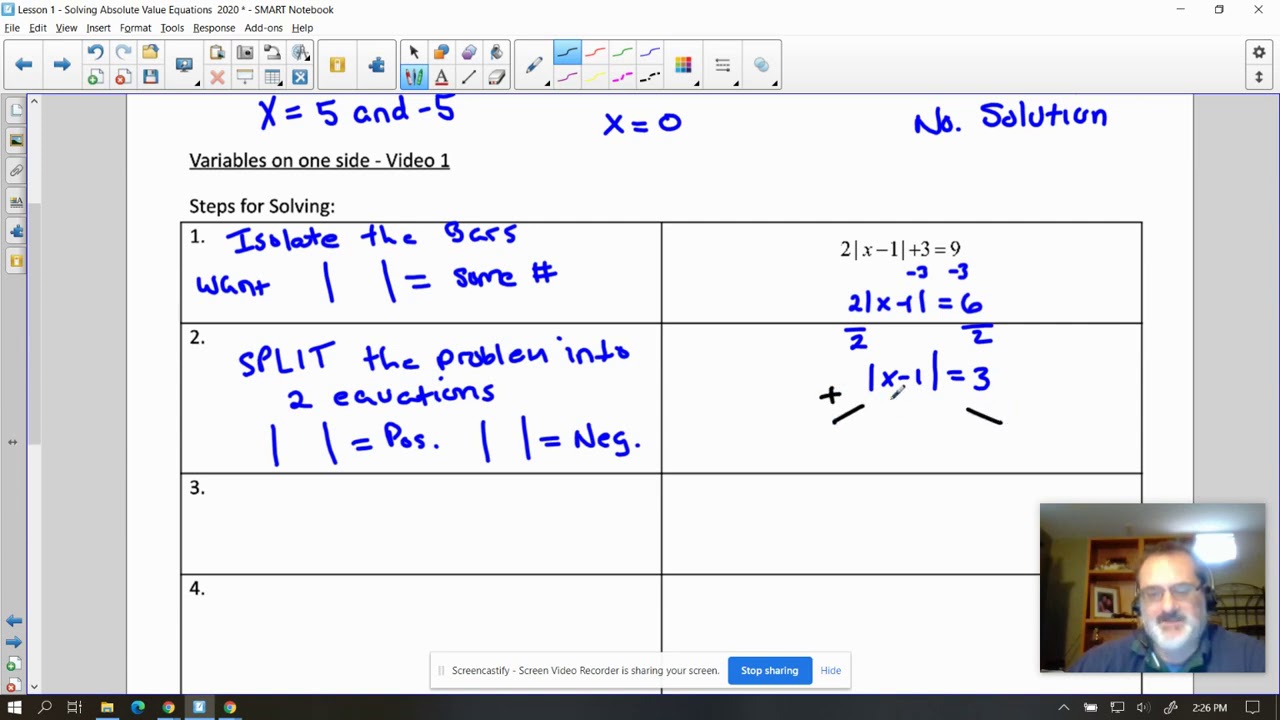 Lesson 1 - Solving Absolute Value Equations 2020 * - SMART Notebook
File Edit View Insert Format Tools Response Add-ons Help
X = 5 and -5
x = 0
No. Solution
Variables on one side - Video 1
Steps for Solving:
1. Isolate the Bars
want | | = some #
2|x-1|+3=9
-3 -3
2|x-1| = 6
2 2
2. SPLIT the problem into
2 equations
| | = Pos. | | = Neg.
|x-1| = 3
+
3.
4.
Screencastify - Screen Video Recorder is sharing your screen. Stop sharing Hide
2:26 PM